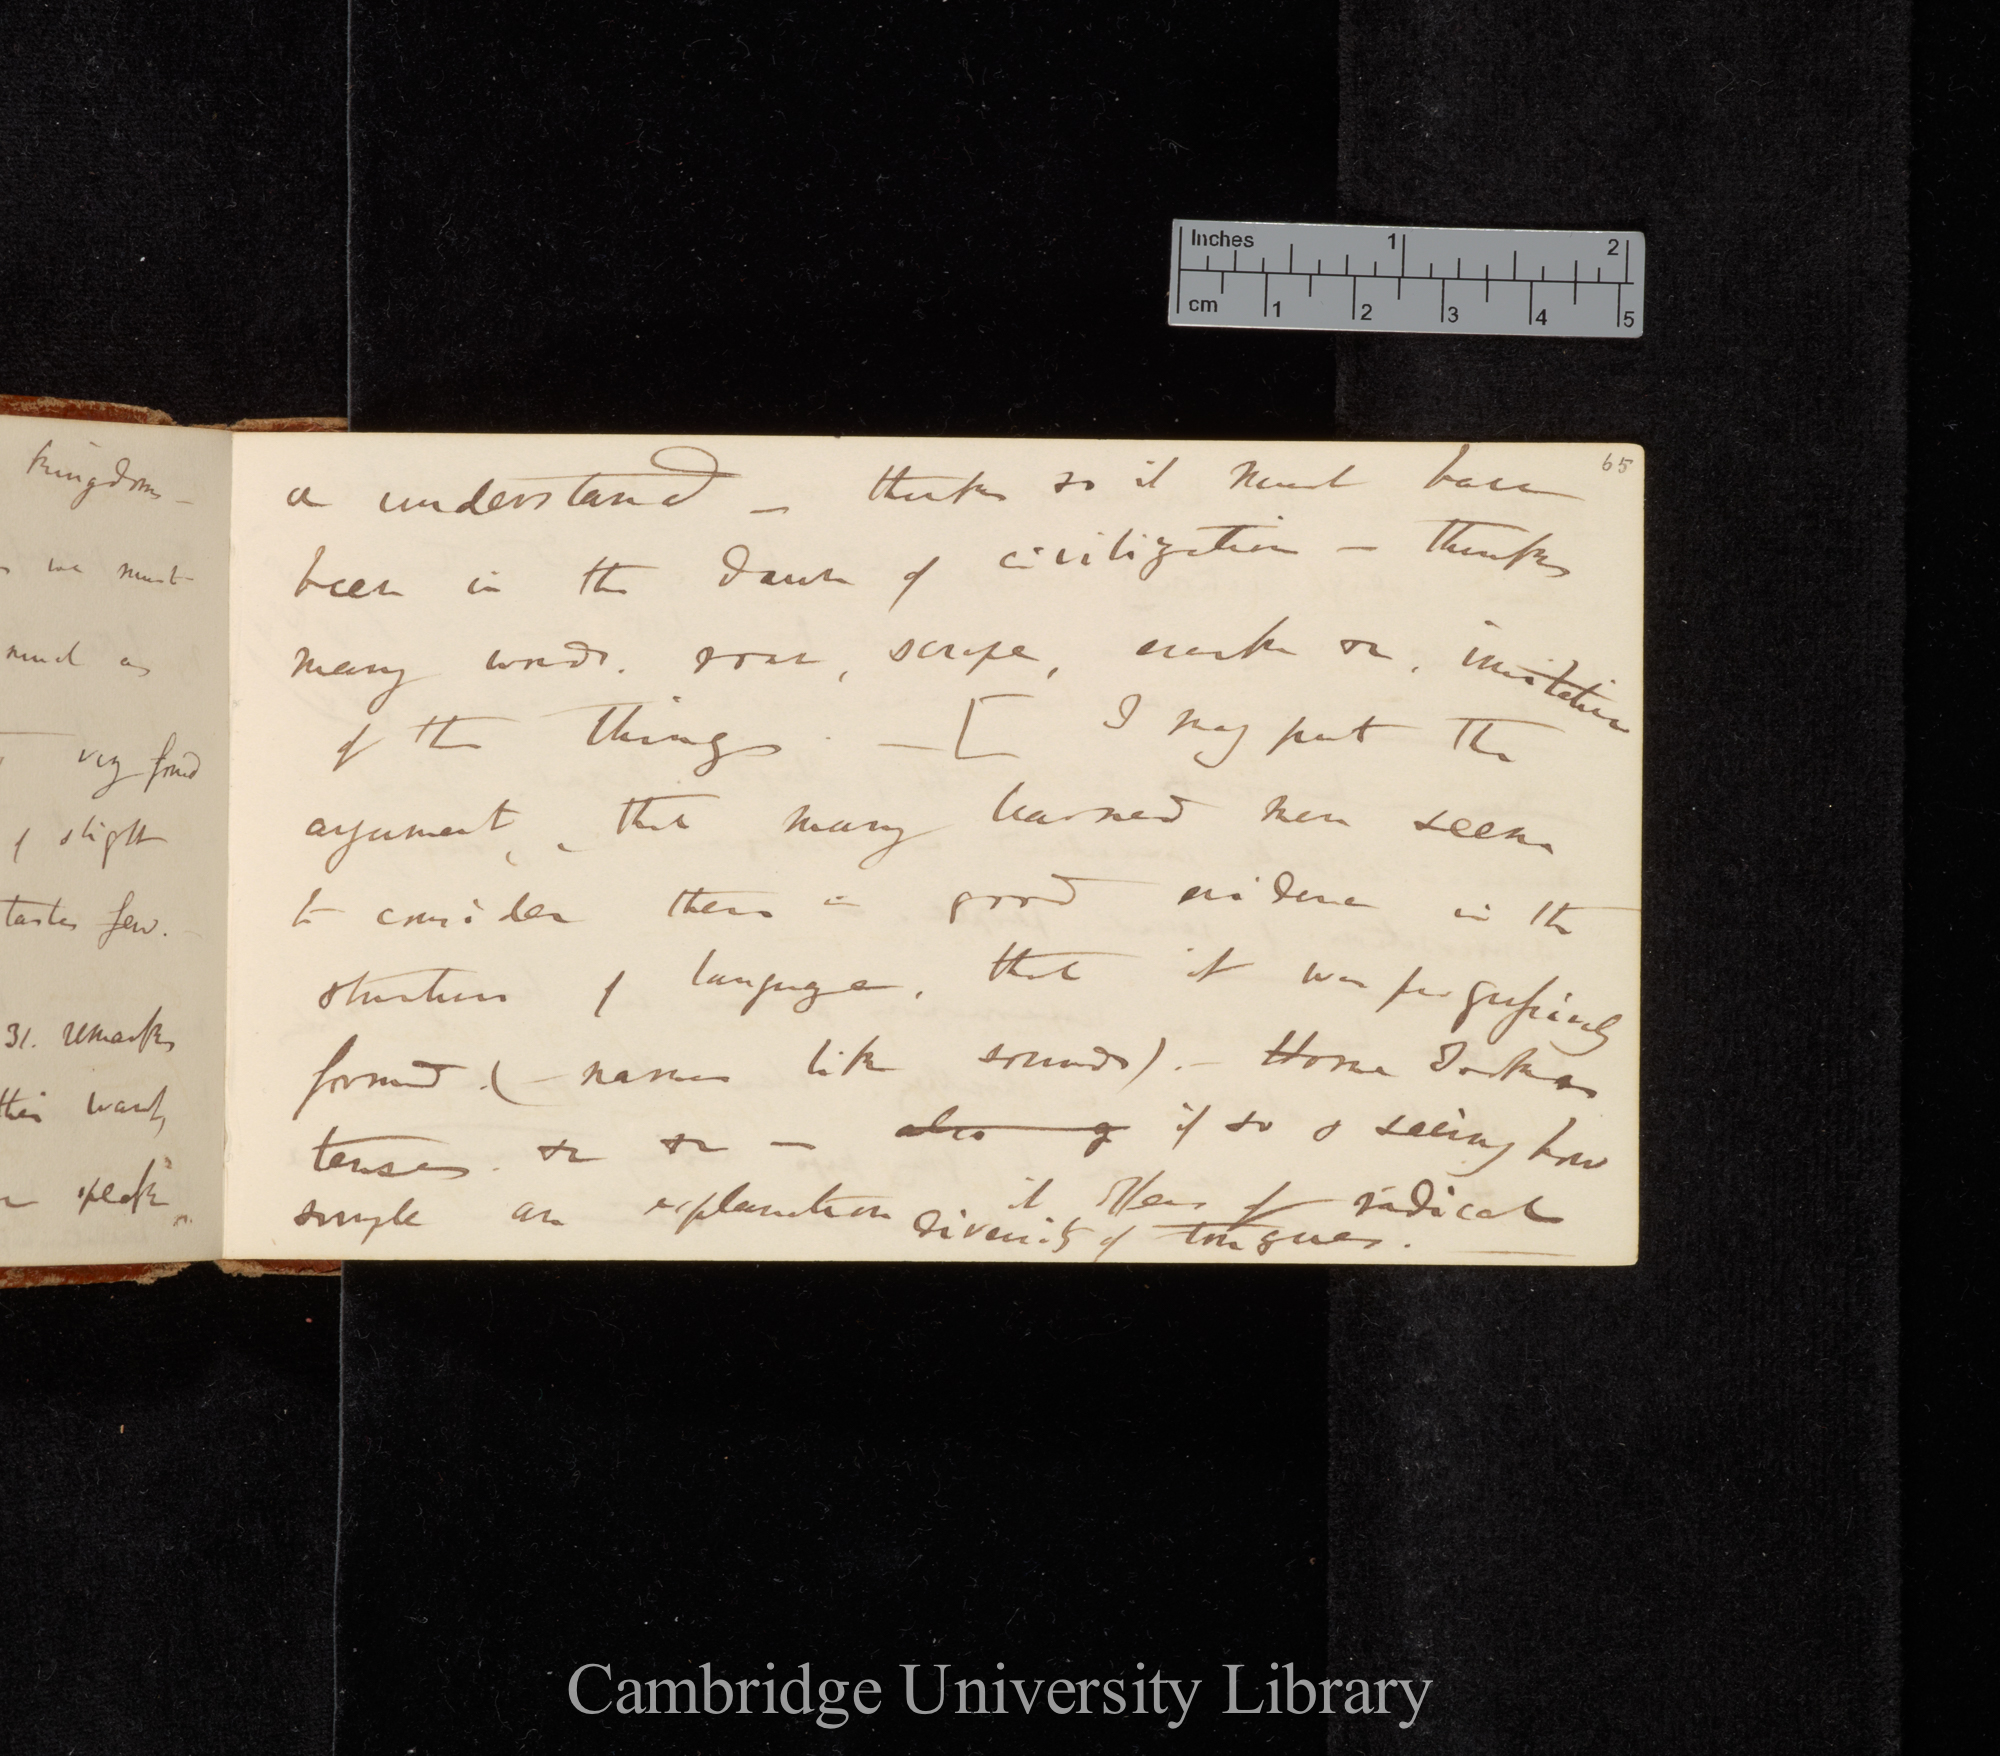 Inches 1 2
cm 1 2 3 4 5
65
kingdoms —
we must
much as
very fond
of slight
tastes few. —
31. remarks
this want,
speak
or understand — thinks so it must have
been in the dawn of civilization — thinks
many words. roar, scrape, crack &c, imitation
of the things. — [ I may put the
argument, that many learned men seem
to consider there is good evidence in the
structure of language, that it was progressively
formed. (— names like sounds). — Horne Tooke's
tenses. &c &c — also if so & seeing how
simple an explanation it offers of radical
diversity of tongues. —
Cambridge University Library